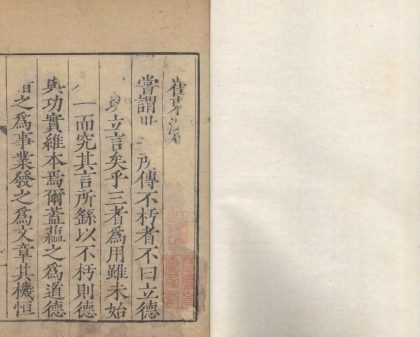 嘗謂 所傳不朽者不曰立德
立言矣乎三者為用雖未始
一而究其言所繇以不朽則德
與功實維本焉爾蓋蘊之為道德
之為事業發之為文章其機恒